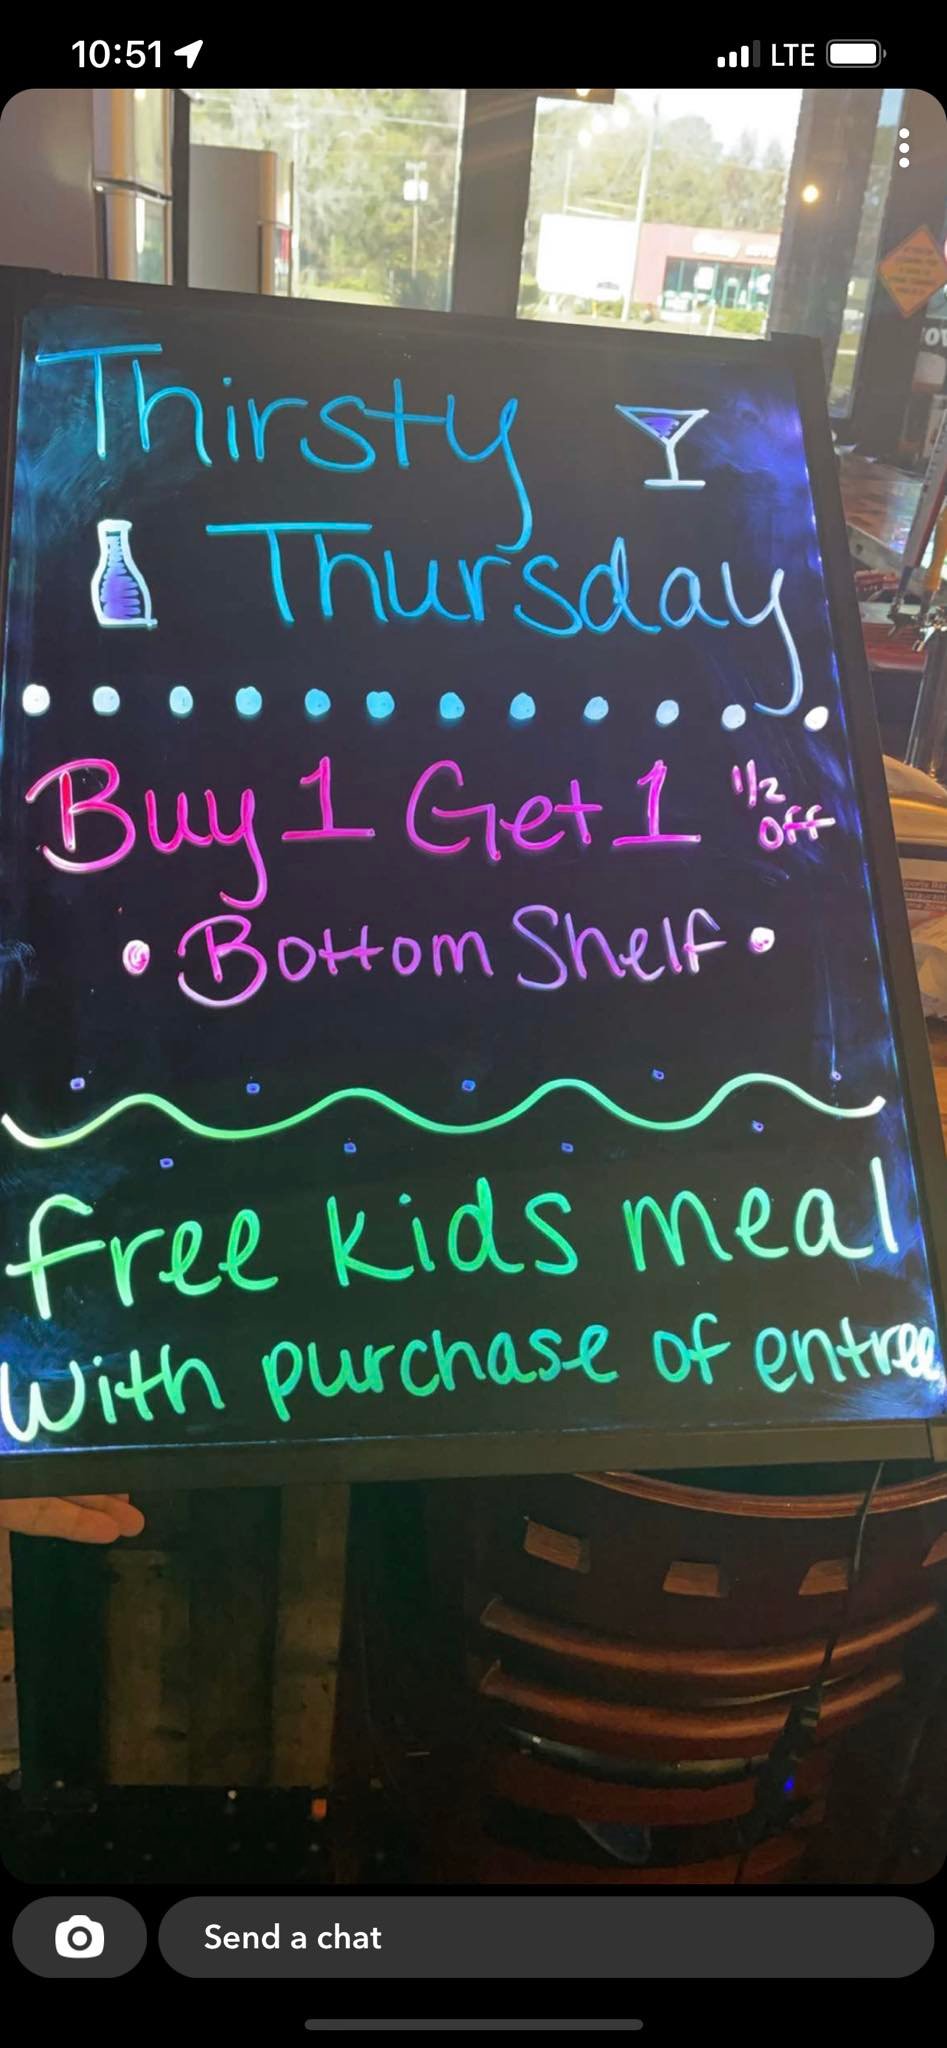 10:51
LTE
Thirsty
Thursday
Buy 1 Get 1 1/2 off
• Bottom Shelf •
free kids meal
With purchase of entree
Send a chat